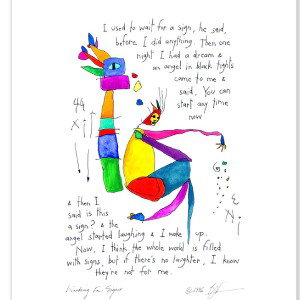 I used to wait for a sign, he said,
before I did anything. Then one
night I had a dream &
an angel in black tights
came to me &
said, You can
start any time
now
& then I
said is this
a sign? & the
angel started laughing & I woke up.
Now, I think the whole world is filled
with signs, but if there's no laughter, I know
they're not for me.
Waiting for Signs
©1996